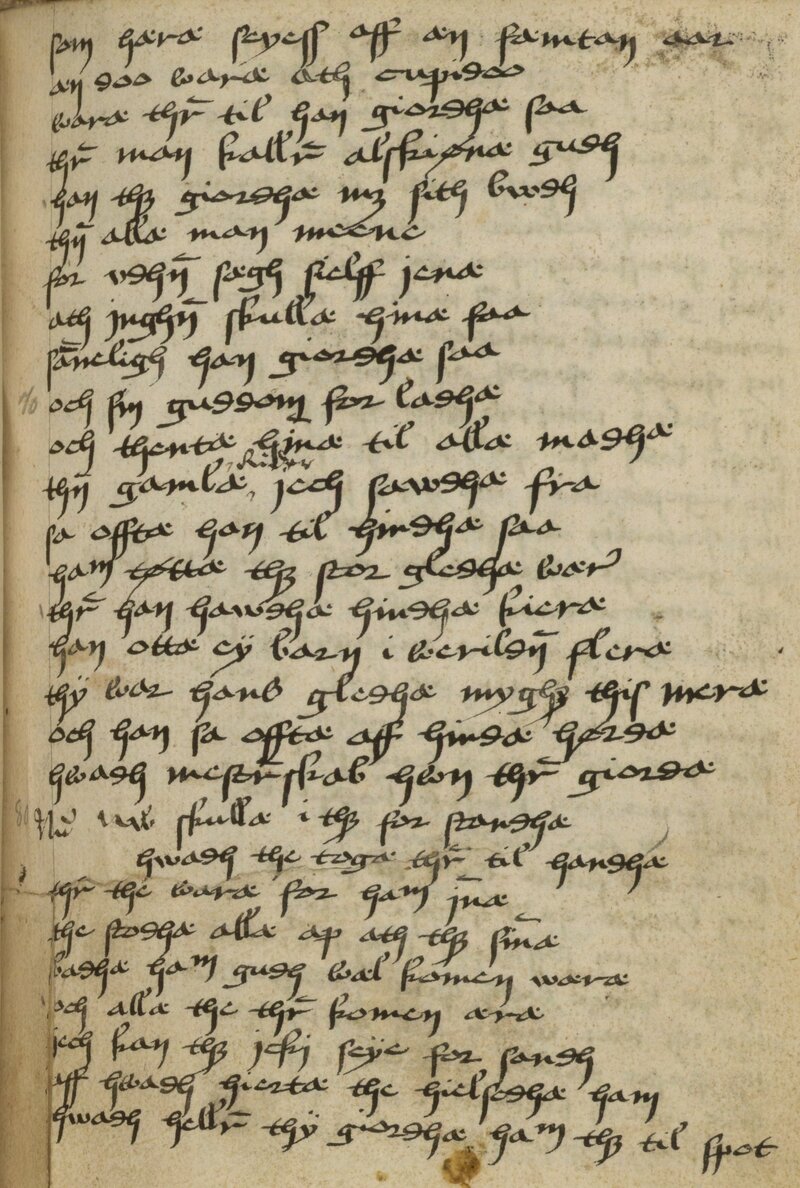 som hæræ seyess aff æn fæmtan aar
æn doo waræ ath cupidoo
waræ thr̄ til han giordhæ saa
thr̄ man kallr̄ alskiønæ gudh
han thꝫ giordhæ mꝫ sith bwdh
thn̄ allæ man meene
for vdhn̄ sægh sielff jenæ
ath jnghn̄ skullæ hinæ faa
sān̄eligh han giordhæ saa
och sin guddom for ladhæ
och thentæ hinæ til allæ madhæ
thn̄ gamlæ ridder jech sawdhæ fra
sa offtæ han til hindhæ saa
ham tøttæ thꝫ stor gledhæ wær
thr̄ han hawdhæ hindhæ kieræ
han ottæ eÿ barn i werildn̄ fleræ
thÿ war hans gledhæ myghꝫ this meræ
och han sa offtæ aff hindæ hørdæ
hwadh mestr̄skab hwn thr̄ giordæ
Nw skullæ i thꝫ for standhæ
hwadh the togæ thr̄ til handhæ
thr̄ the waræ for ham jn̄æ
the stodhæ allæ ap ath thꝫ sin̄æ
badhæ ham gudh wæl komen wæræ
och allæ the thr̄ komen æræ
jech kan thꝫ jcki seÿe for sandh
aff hwadh hiertæ the hielsedhæ ham
hwadh hellr̄ thÿ giordhæ ham thꝫ til spot